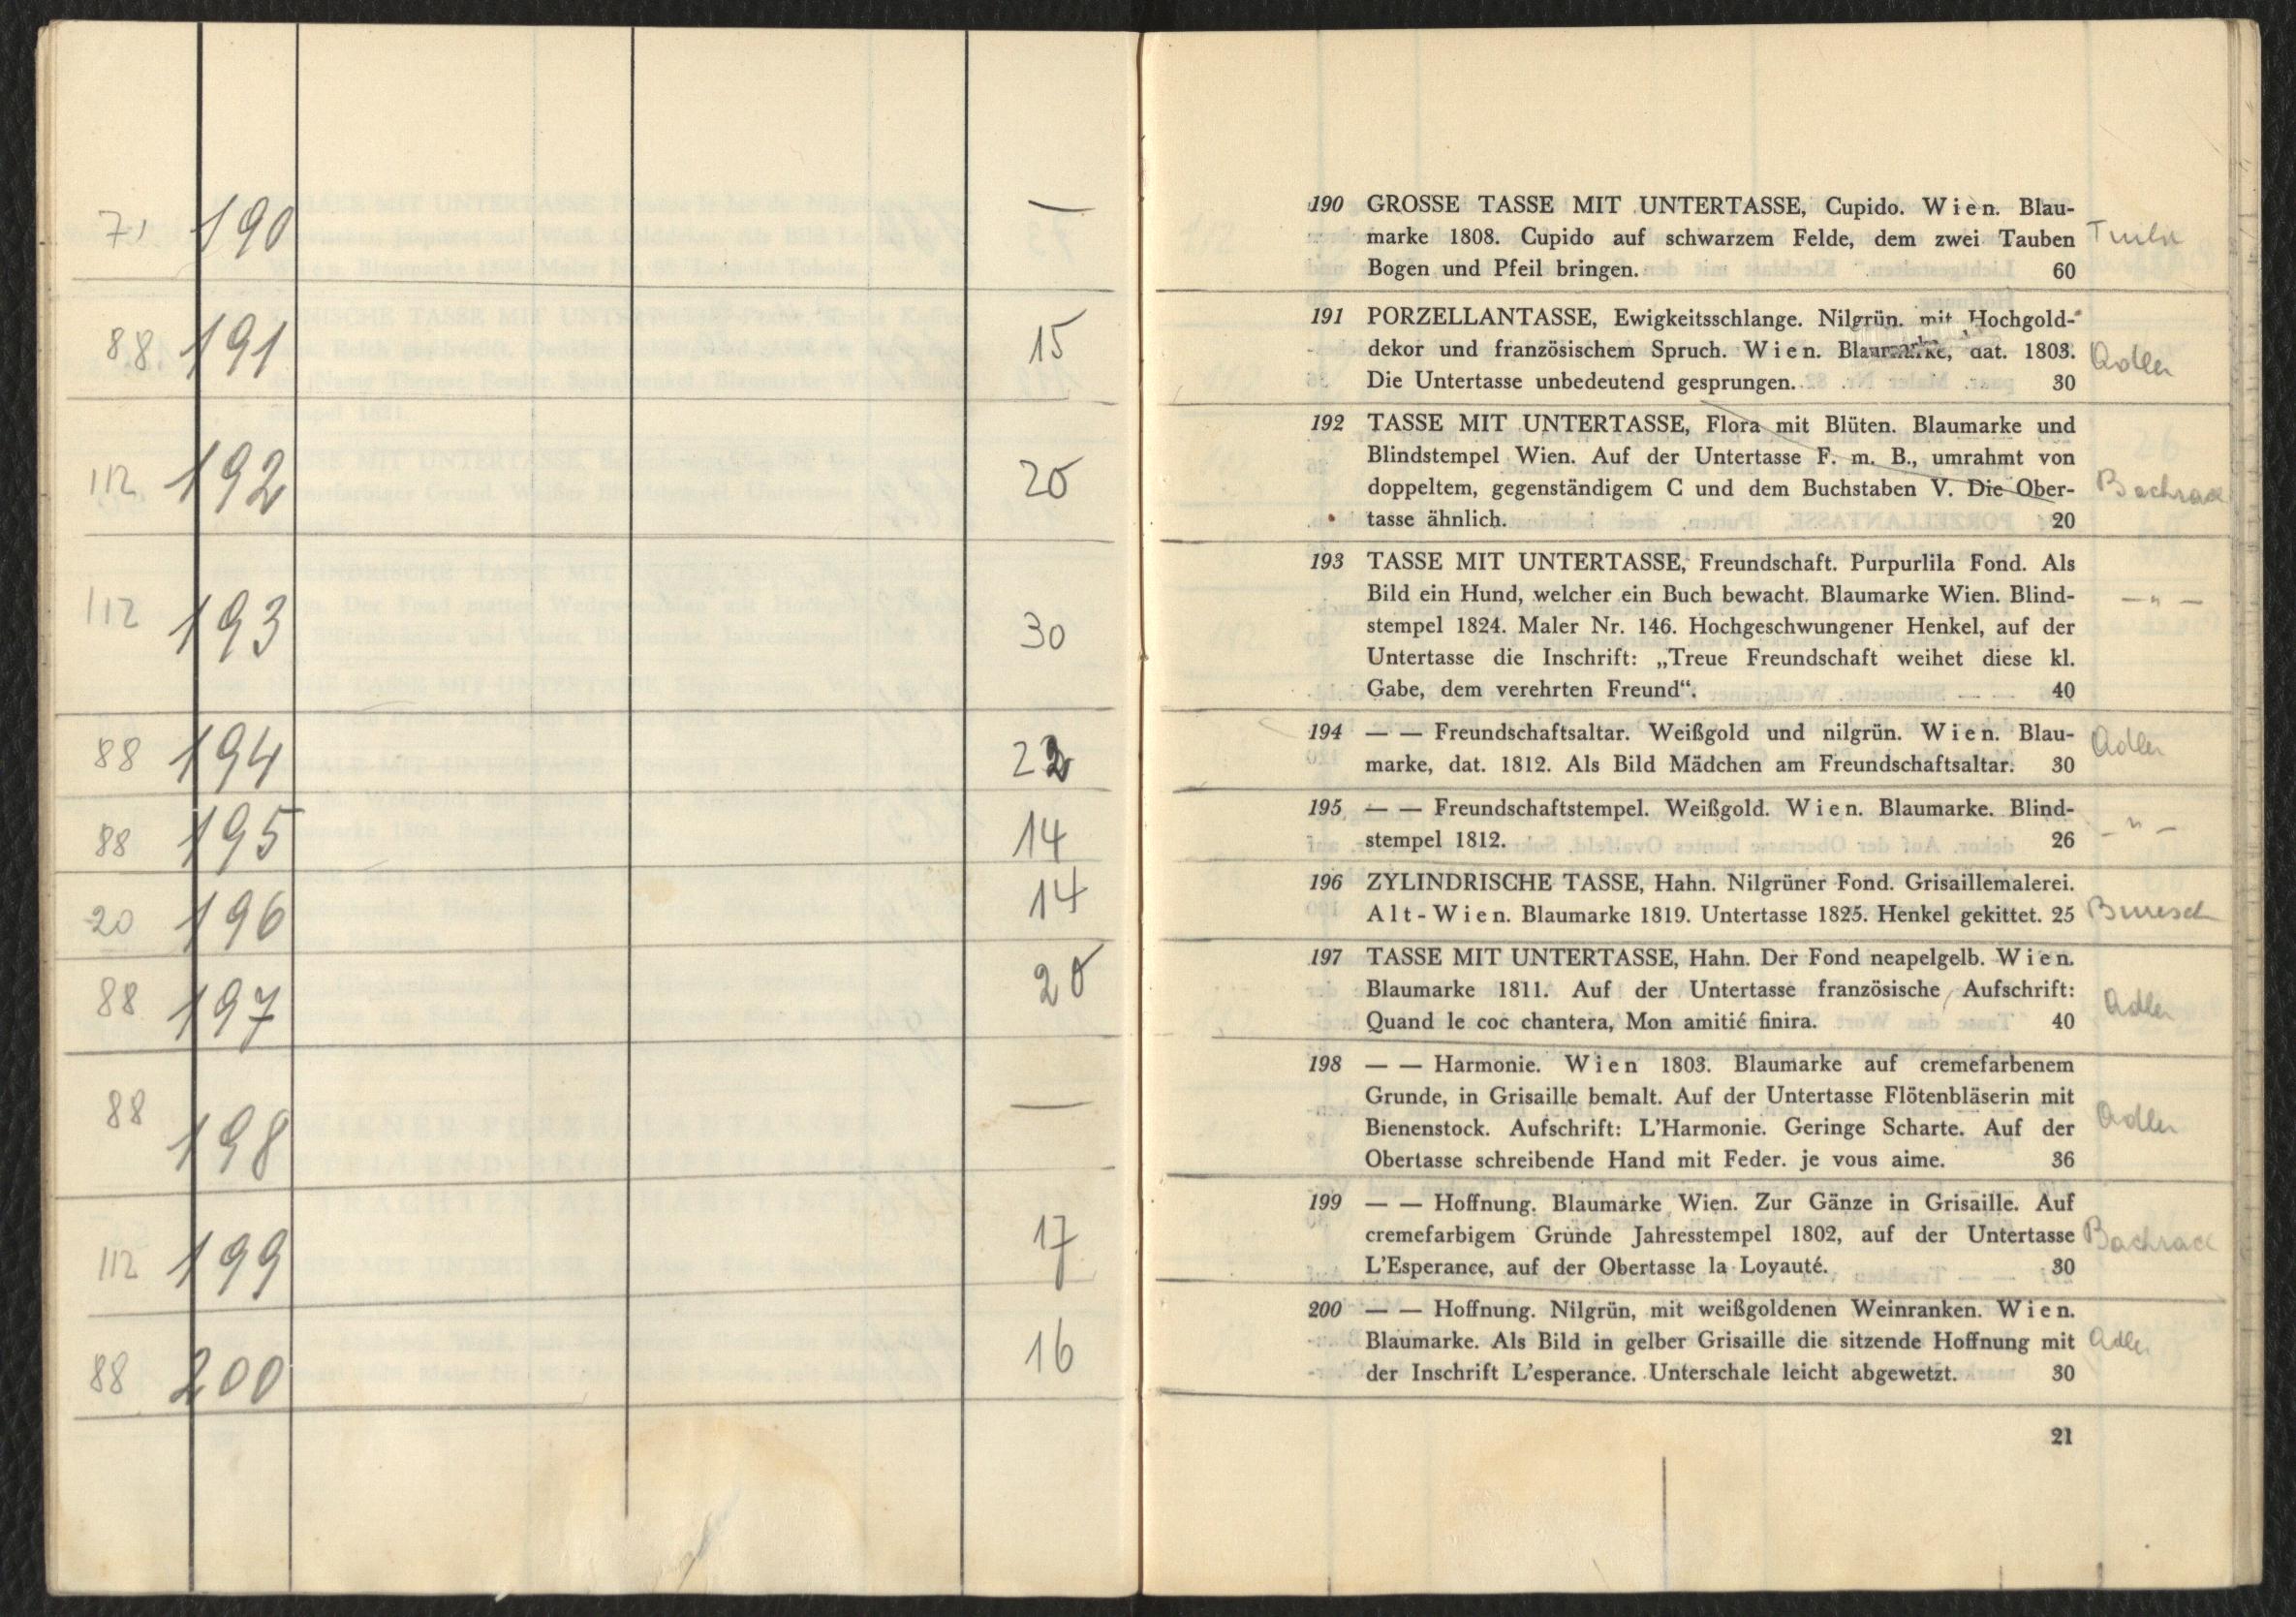 71 190 —
88 191 15
112 192 20
112 193 30
88 194 22
88 195 14
20 196 14
88 197 20
88 198 —
112 199 17
88 200 16
190 GROSSE TASSE MIT UNTERTASSE, Cupido. Wien. Blau-
marke 1808. Cupido auf schwarzem Felde, dem zwei Tauben
Bogen und Pfeil bringen. 60
191 PORZELLANTASSE, Ewigkeitsschlange. Nilgrün. mit Hochgold-
dekor und französischem Spruch. Wien. Blaumarke, dat. 1803. Adler
Die Untertasse unbedeutend gesprungen. 30
192 TASSE MIT UNTERTASSE, Flora mit Blüten. Blaumarke und
Blindstempel Wien. Auf der Untertasse F. m. B., umrahmt von
doppeltem, gegenständigem C und dem Buchstaben V. Die Ober- Bachrach
tasse ähnlich. 20
193 TASSE MIT UNTERTASSE, Freundschaft. Purpurlila Fond. Als
Bild ein Hund, welcher ein Buch bewacht. Blaumarke Wien. Blind- — " —
stempel 1824. Maler Nr. 146. Hochgeschwungener Henkel, auf der
Untertasse die Inschrift: „Treue Freundschaft weihet diese kl.
Gabe, dem verehrten Freund“. 40
194 — — Freundschaftsaltar. Weißgold und nilgrün. Wien. Blau- Adler
marke, dat. 1812. Als Bild Mädchen am Freundschaftsaltar. 30
195 — — Freundschaftstempel. Weißgold. Wien. Blaumarke. Blind- — " —
stempel 1812. 26
196 ZYLINDRISCHE TASSE, Hahn. Nilgrüner Fond. Grisaillemalerei.
Alt-Wien. Blaumarke 1819. Untertasse 1825. Henkel gekittet. 25 Buresch
197 TASSE MIT UNTERTASSE, Hahn. Der Fond neapelgelb. Wien.
Blaumarke 1811. Auf der Untertasse französische Aufschrift: Adler
Quand le coc chantera, Mon amitié finira. 40
198 — — Harmonie. Wien 1803. Blaumarke auf cremefarbenem
Grunde, in Grisaille bemalt. Auf der Untertasse Flötenbläserin mit
Bienenstock. Aufschrift: L'Harmonie. Geringe Scharte. Auf der Adler
Obertasse schreibende Hand mit Feder. je vous aime. 36
199 — — Hoffnung. Blaumarke Wien. Zur Gänze in Grisaille. Auf
cremefarbigem Grunde Jahresstempel 1802, auf der Untertasse Bachrach
L'Esperance, auf der Obertasse la Loyauté. 30
200 — — Hoffnung. Nilgrün, mit weißgoldenen Weinranken. Wien.
Blaumarke. Als Bild in gelber Grisaille die sitzende Hoffnung mit Adler
der Inschrift L'esperance. Unterschale leicht abgewetzt. 30
21